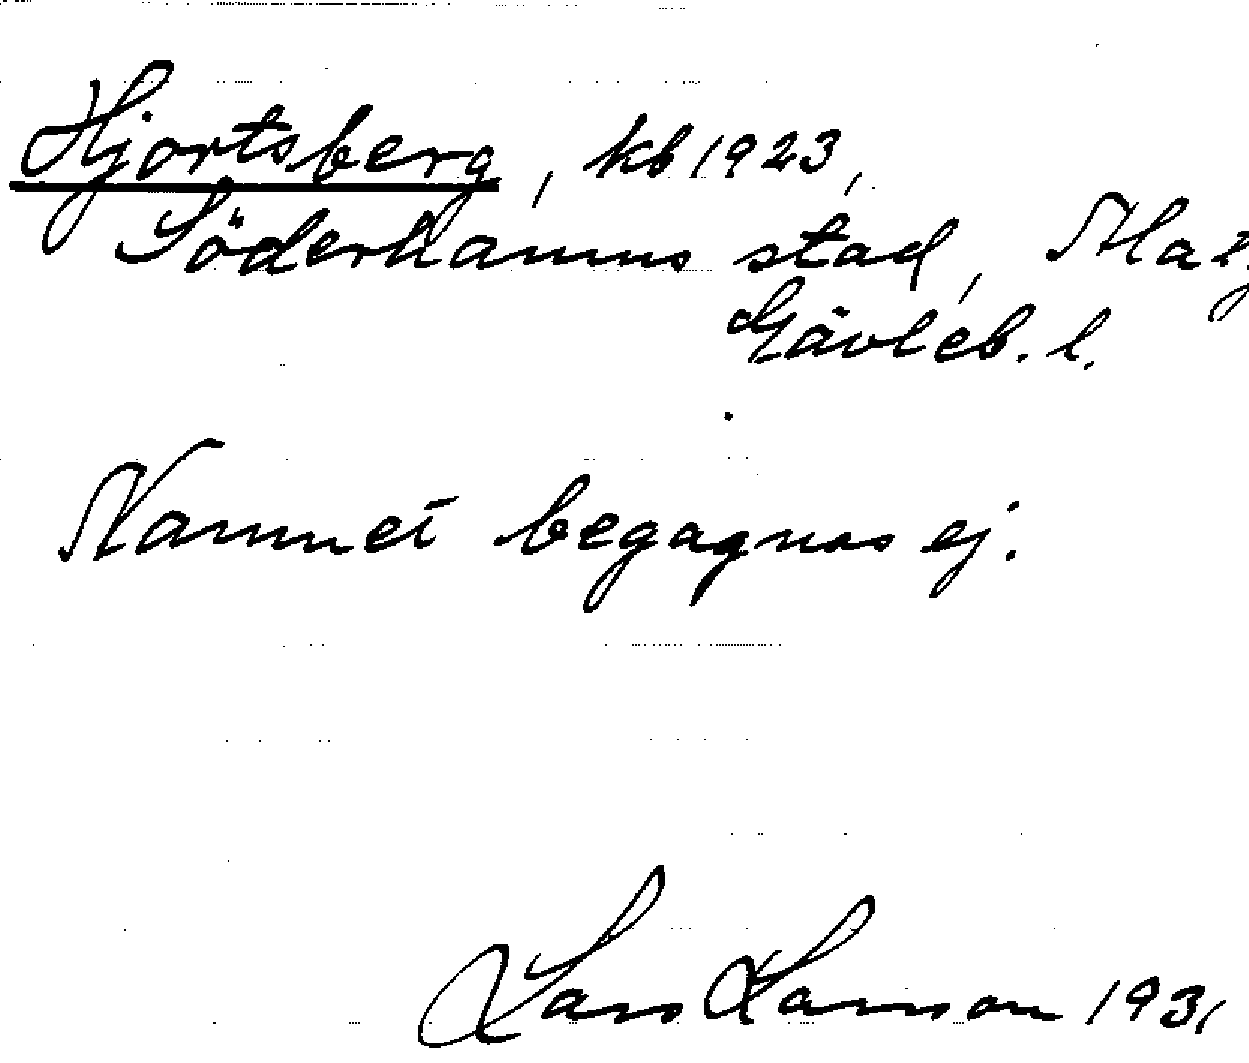 Hjortsberg, kb 1923,
Söderhamns stad,
Gävleb. l.
Namnet begagnas ej.
Lars Larsson 1931